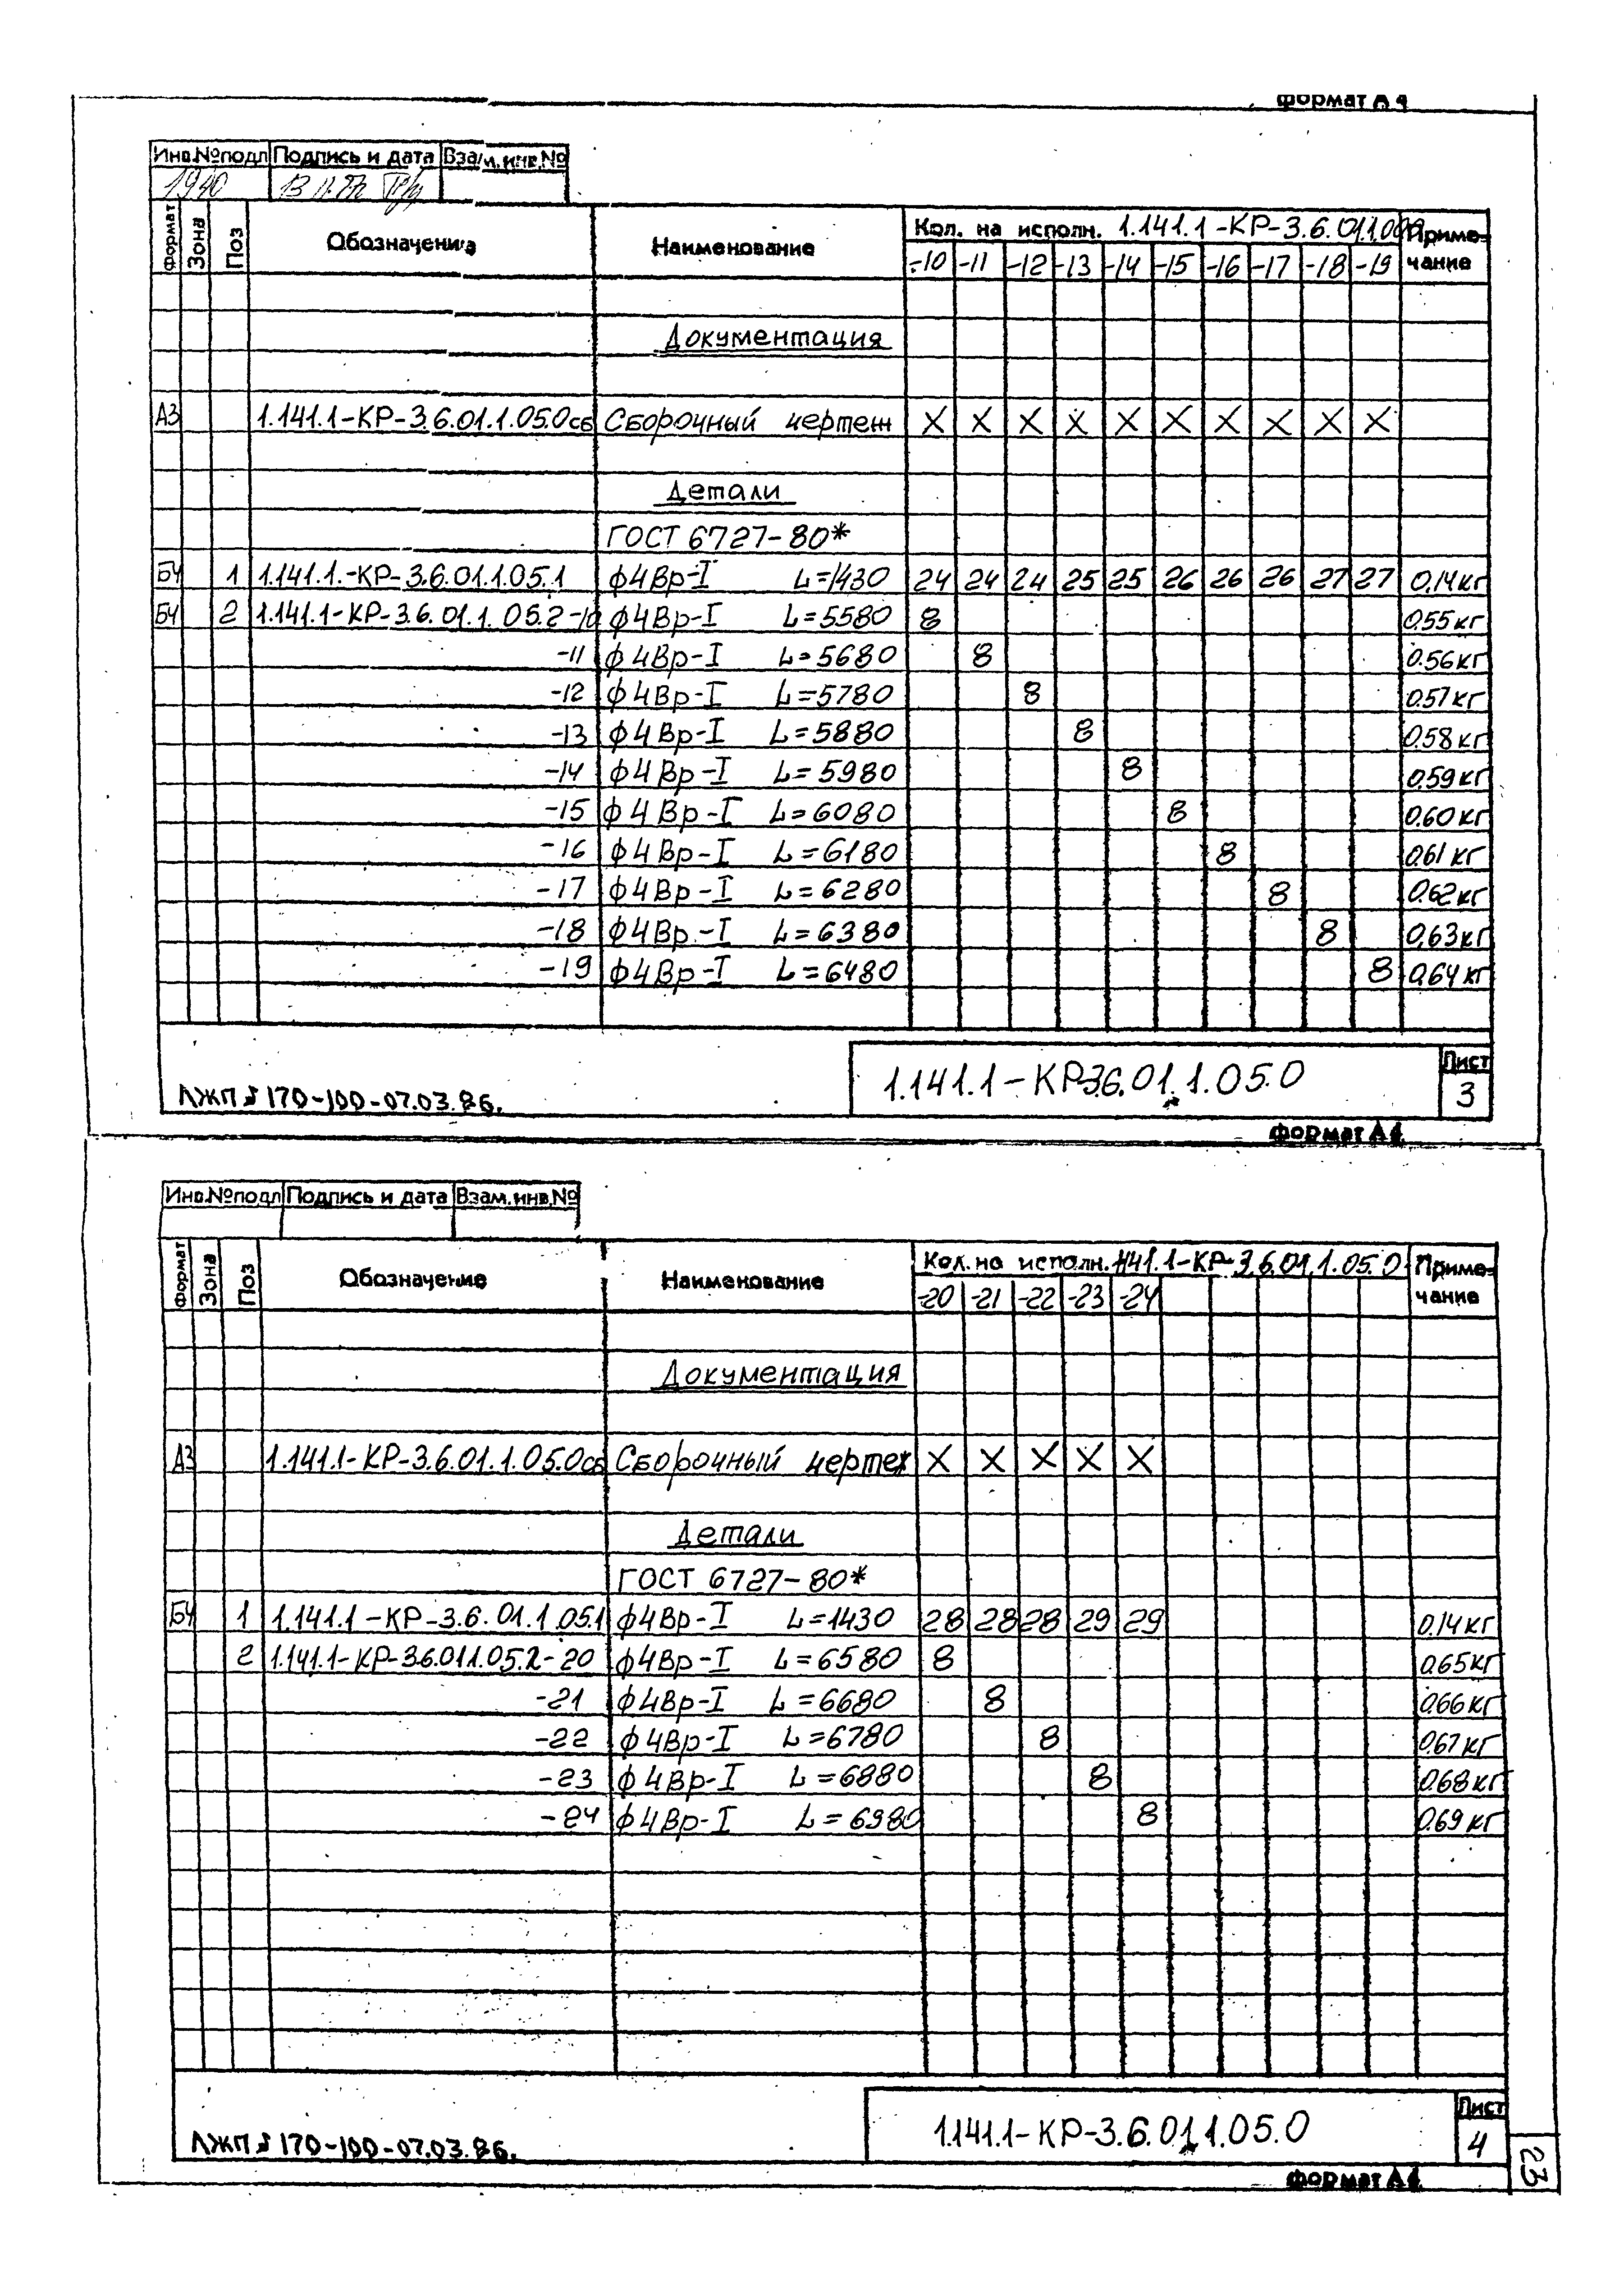 формат А4
Инв.№подл Подпись и дата Взам.инв.№
1940
Формат Зона Поз Обозначение Наименование Кол. на исполн. 1.141.1-КР-3.6.01.1.0 Приме-
-10 -11 -12 -13 -14 -15 -16 -17 -18 -19 чание
Документация
А3 1.141.1-КР-3.6.01.1.05.0сб Сборочный чертеж X X X X X X X X X X
Детали
ГОСТ 6727-80*
БЧ 1 1.141.1.-КР-3.6.01.1.05.1 ф4Вр-I L=1430 24 24 24 25 25 26 26 26 27 27 0,14кг
БЧ 2 1.141.1-КР-3.6.01.1.05.2-10 ф4Вр-I L=5580 8 0.55кг
-11 ф4Вр-I L=5680 8 0.56кг
-12 ф4Вр-I L=5780 8 0.57кг
-13 ф4Вр-I L=5880 8 0.58кг
-14 ф4Вр-I L=5980 8 0.59кг
-15 ф4Вр-I L=6080 8 0.60кг
-16 ф4Вр-I L=6180 8 0.61кг
-17 ф4Вр-I L=6280 8 0.62кг
-18 ф4Вр-I L=6380 8 0,63кг
-19 ф4Вр-I L=6480 8 0,64кг
1.141.1-КР-3.6.01.1.05.0 Лист
3
170-100-07.03.86.
формат А4
Инв.№подл Подпись и дата Взам.инв.№
Формат Зона Поз Обозначение Наименование Кол. на исполн. 1.141.1-КР-3.6.01.1.05.0 Приме-
-20 -21 -22 -23 -24 чание
Документация
А3 1.141.1-КР-3.6.01.1.05.0сб Сборочный чертеж X X X X X
Детали
ГОСТ 6727-80*
БЧ 1 1.141.1-КР-3.6.01.1.05.1 ф4Вр-I L=1430 28 28 28 29 29 0,14кг
2 1.141.1-КР-3.6.01.1.05.2-20 ф4Вр-I L=6580 8 0,65кг
-21 ф4Вр-I L=6680 8 0.66кг
-22 ф4Вр-I L=6780 8 0.67кг
-23 ф4Вр-I L=6880 8 0.68кг
-24 ф4Вр-I L=6980 8 0.69кг
1.141.1-КР-3.6.01.1.05.0 Лист
4
170-100-07.03.86.
формат А4
23